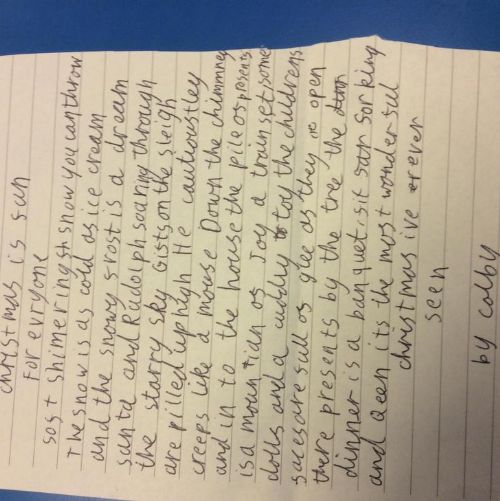 christmas is sun
For evryone
sost shimering snow you can throw
The snow is as cold as ice cream
and the snowy srost is a dream
santa and Rudolph soaring through
the starry sky Gists on the sleigh
are pilled up high He cautioustley
creeps like a mouse Down the chimmney
and in to the house the pile os presents
is a mountian os Joy a train set, some
dolls and a cuddly toy the childrens
saces are sull os glee as they open
there presents by the tree the
dinner is a banquet sit sar sor king
and Qeen its the most wondersul
christmas ive erever
seen
by colby